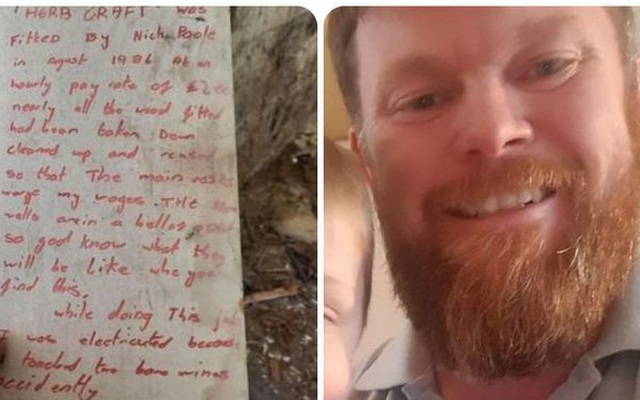 "HERB CRAFT" WAS
Fitted By Nick Poole
in agust 1986 At an
hourly pay rate of £2
nearly all the wood fitted
had been taken Down
cleaned up and
so that The main
my wages. THE
walls are in a
so god know what they
will be like whe you
find this.
while doing This
I was electricuted because
I touched two bare wires
accidently